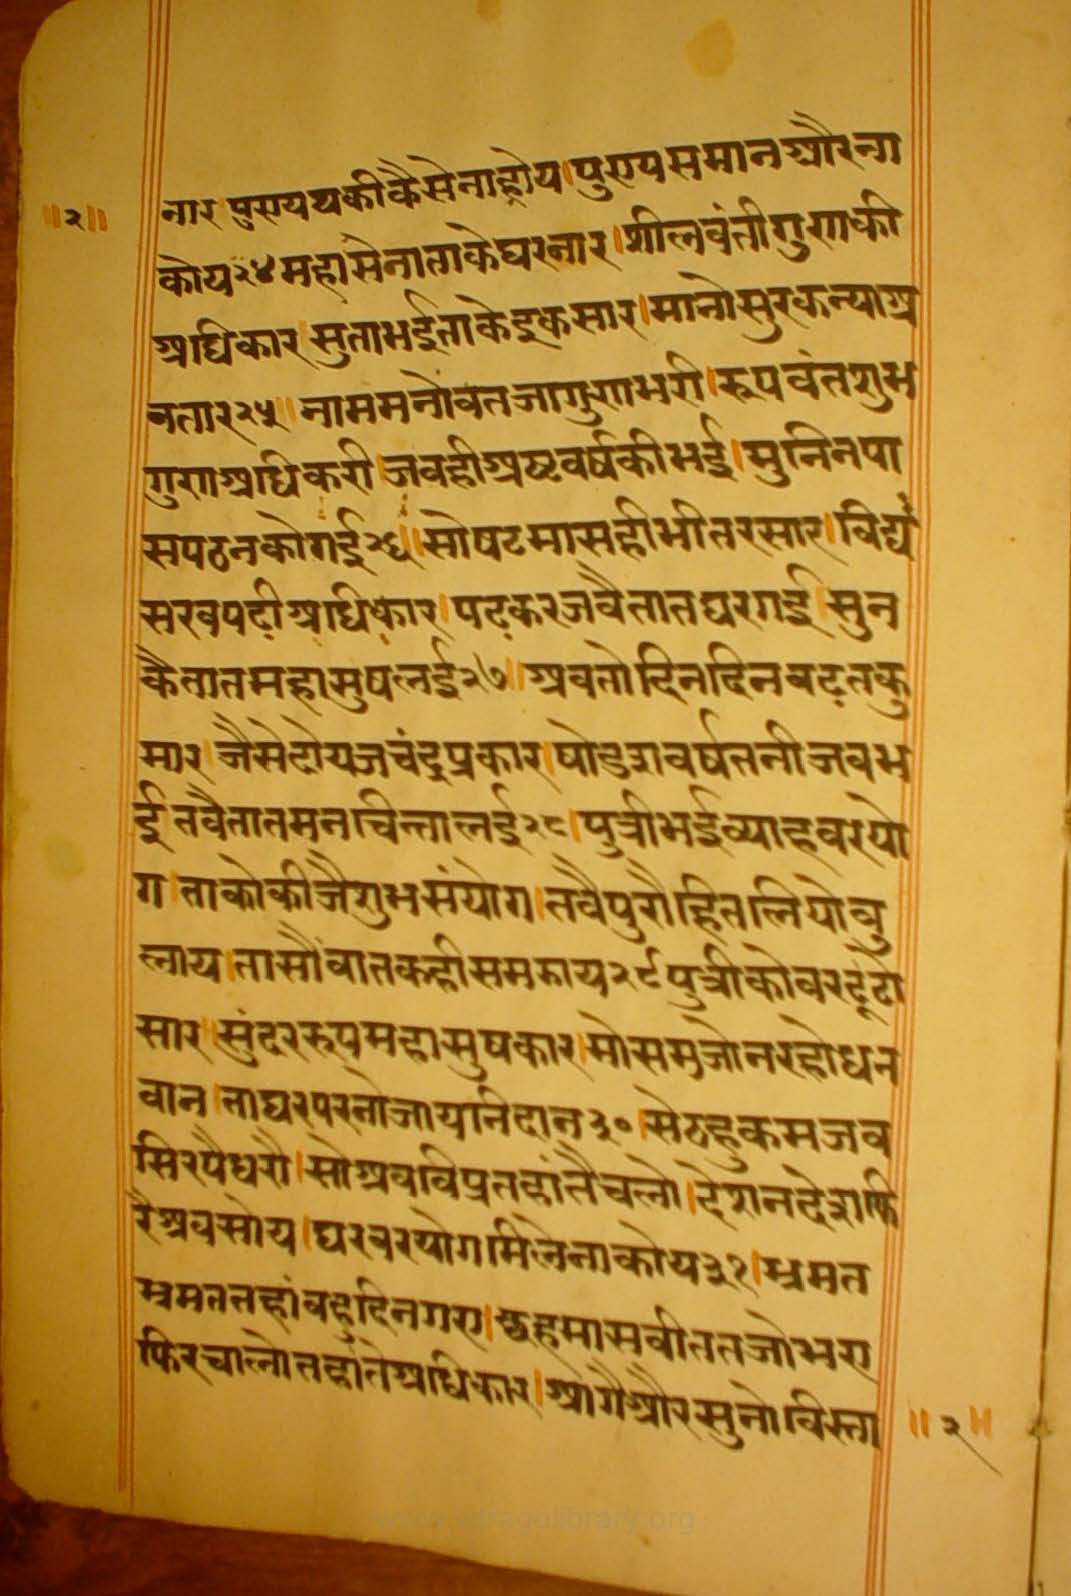 नार पुण्य थकी कैसे ना होय। पुण्य समान और ना
॥२॥
कोय २४ महासेना ताके घर नार। शीलवंती गुण की
अधिकार सुता भई ताके इक सार। मानो सुरकन्या अ
वतार २५॥ नाम मनोवत जा गुण भरी। रूपवंत शुभ
गुण अधिकरी जवही अष्ट वर्ष की भई। मुनिन पा
स पठन को गई २६॥ सो षट मास ही भीतर सार। विद्य
सरव पढ़ी अधिकार। पढ़कर जवै तात घर गई। सुन
कै तात महासुष लई २७॥ अव तो दिन दिन बढ़त कु
मार। जैसे दोयज चंद्र प्रकार। षोडश वर्ष तनी जव भ
ई तवै तात मन चिन्ता लई २८। पुत्री भई व्याह वर यो
ग। ताको कीजै शुभ संयोग। तवै पुरोहित लियो वु
लाय। तासौं वात कही समझाय २९ पुत्री को वर ढूंढो
सार। सुंदर रूप महासुषकार। मो सम जो नर हो धन
वान। ता घर परनो जाय निदान ३०। सेठ हुकम जव
सिर पै धरौ। सो अव विप्र तहां तै चलो। देशन देश फि
रै अव सोय। घर वर योग मिले ना कोय ३१। भ्रमत
भ्रमत तहां वहु दिन गए। छह मास वीतत जो भए
फिर चालो तहां ते अधिकार। आगै और सुनो विस्ता
॥२॥